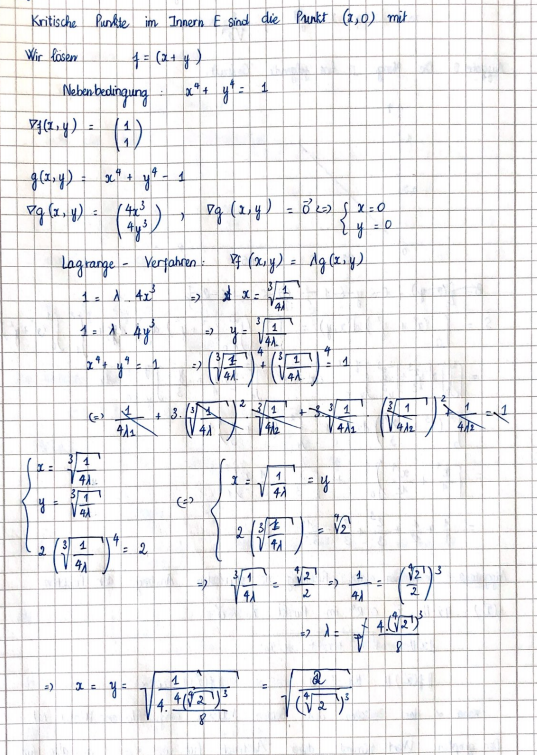 Kritische Punkte im Innern E sind die Punkt (x,0) mit
Wir lösen f = (x + y)
Nebenbedingung : x⁴ + y⁴ = 1
∇f(x,y) = (1 1)
g(x,y) = x⁴ + y⁴ - 1
∇g(x,y) = (4x³ 4y³) , ∇g(x,y) = 0⃗ <=> { x = 0
y = 0
Lagrange - Verfahren: ∇f(x,y) = λg(x,y)
1 = λ · 4x³ => x = ∛(1/4λ)
1 = λ · 4y³ => y = ∛(1/4λ)
x⁴ + y⁴ = 1 => (∛(1/4λ))⁴ + (∛(1/4λ))⁴ = 1
<=> 1/4λ₁ + 3·(∛(1/4λ))² · ∛(1/4λ₂) + 3·∛(1/4λ₁) · (∛(1/4λ₂))² + 1/4λ₂ = 1
{ x = ∛(1/4λ) <=> { x = √(1/4λ) = y
y = ∛(1/4λ)
2(∛(1/4λ))⁴ = 2 2(∛(1/4λ)) = ∜2
=> ∛(1/4λ) = ∜2/2 => 1/4λ = (∜2/2)³
=> λ = 4·(∜2)³/8
=> x = y = √(1/(4·4(∜2)³/8)) = √(2/(∜2)³)